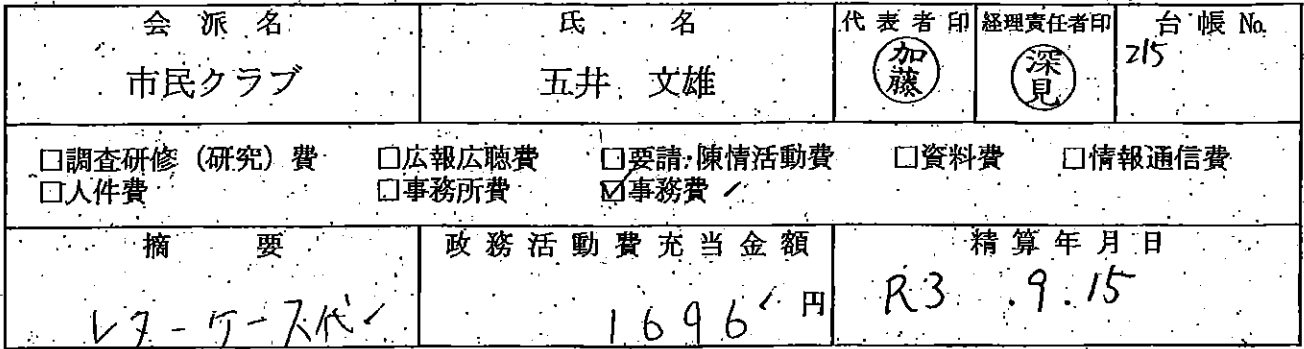 会派名 氏名 代表者印 経理責任者印 台帳No.
市民クラブ 五井 文雄 加藤 深見 215
□調査研修(研究)費 □広報広聴費 □要請・陳情活動費 □資料費 □情報通信費
□人件費 □事務所費 ☑事務費
摘要 政務活動費充当金額 精算年月日
レターケース代 1696円 R3.9.15